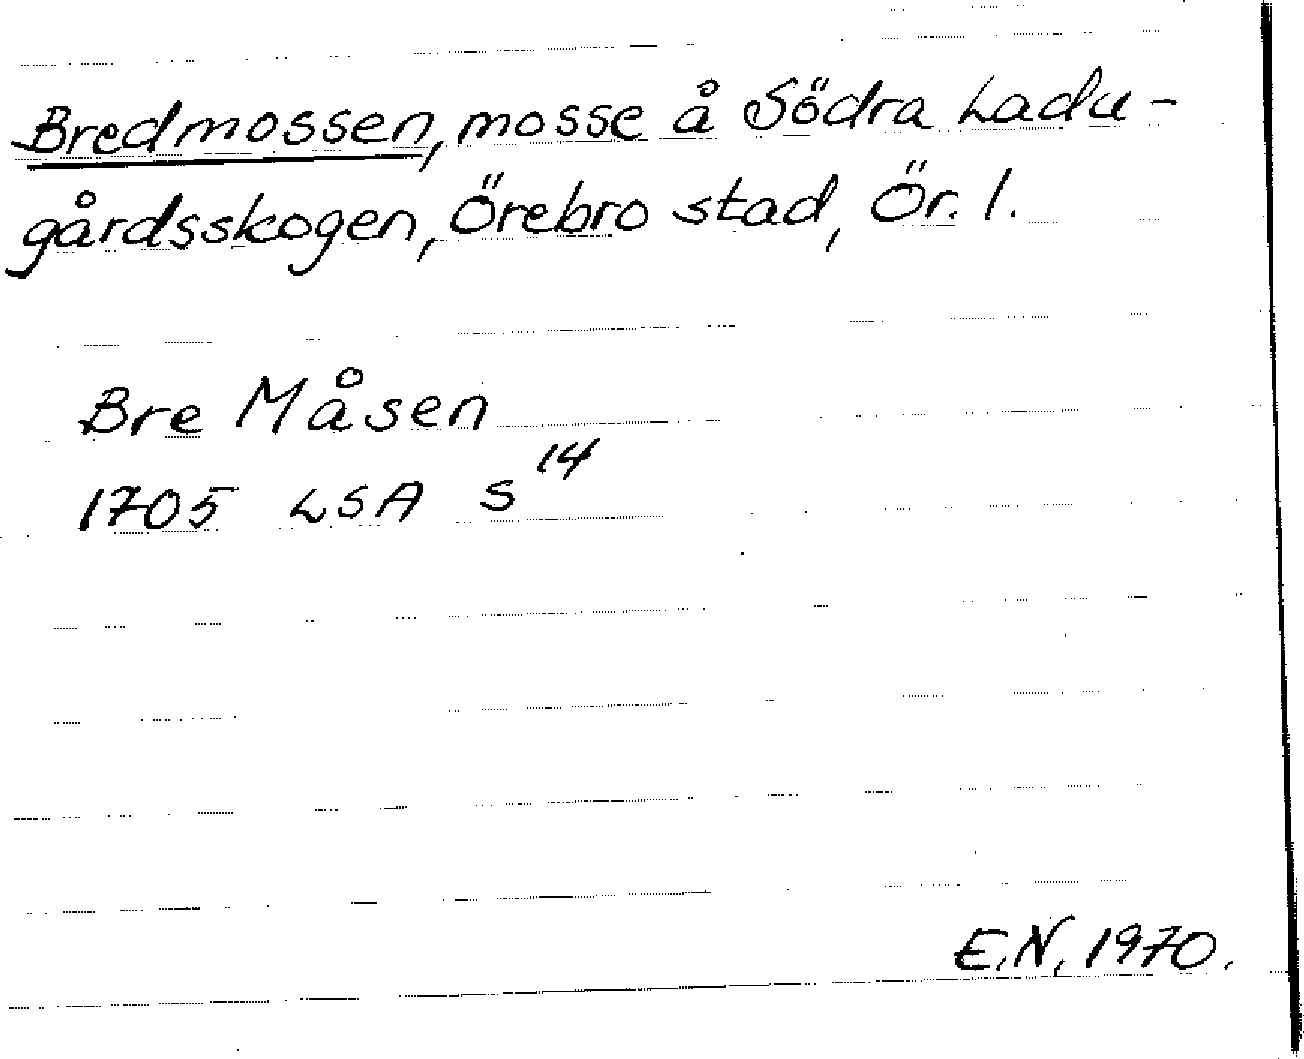 Bredmossen, mosse å Södra Ladu-
gårdsskogen, Örebro stad, Ör. l.
Bre Måsen
1705 LSA S 14
E.N. 1970.